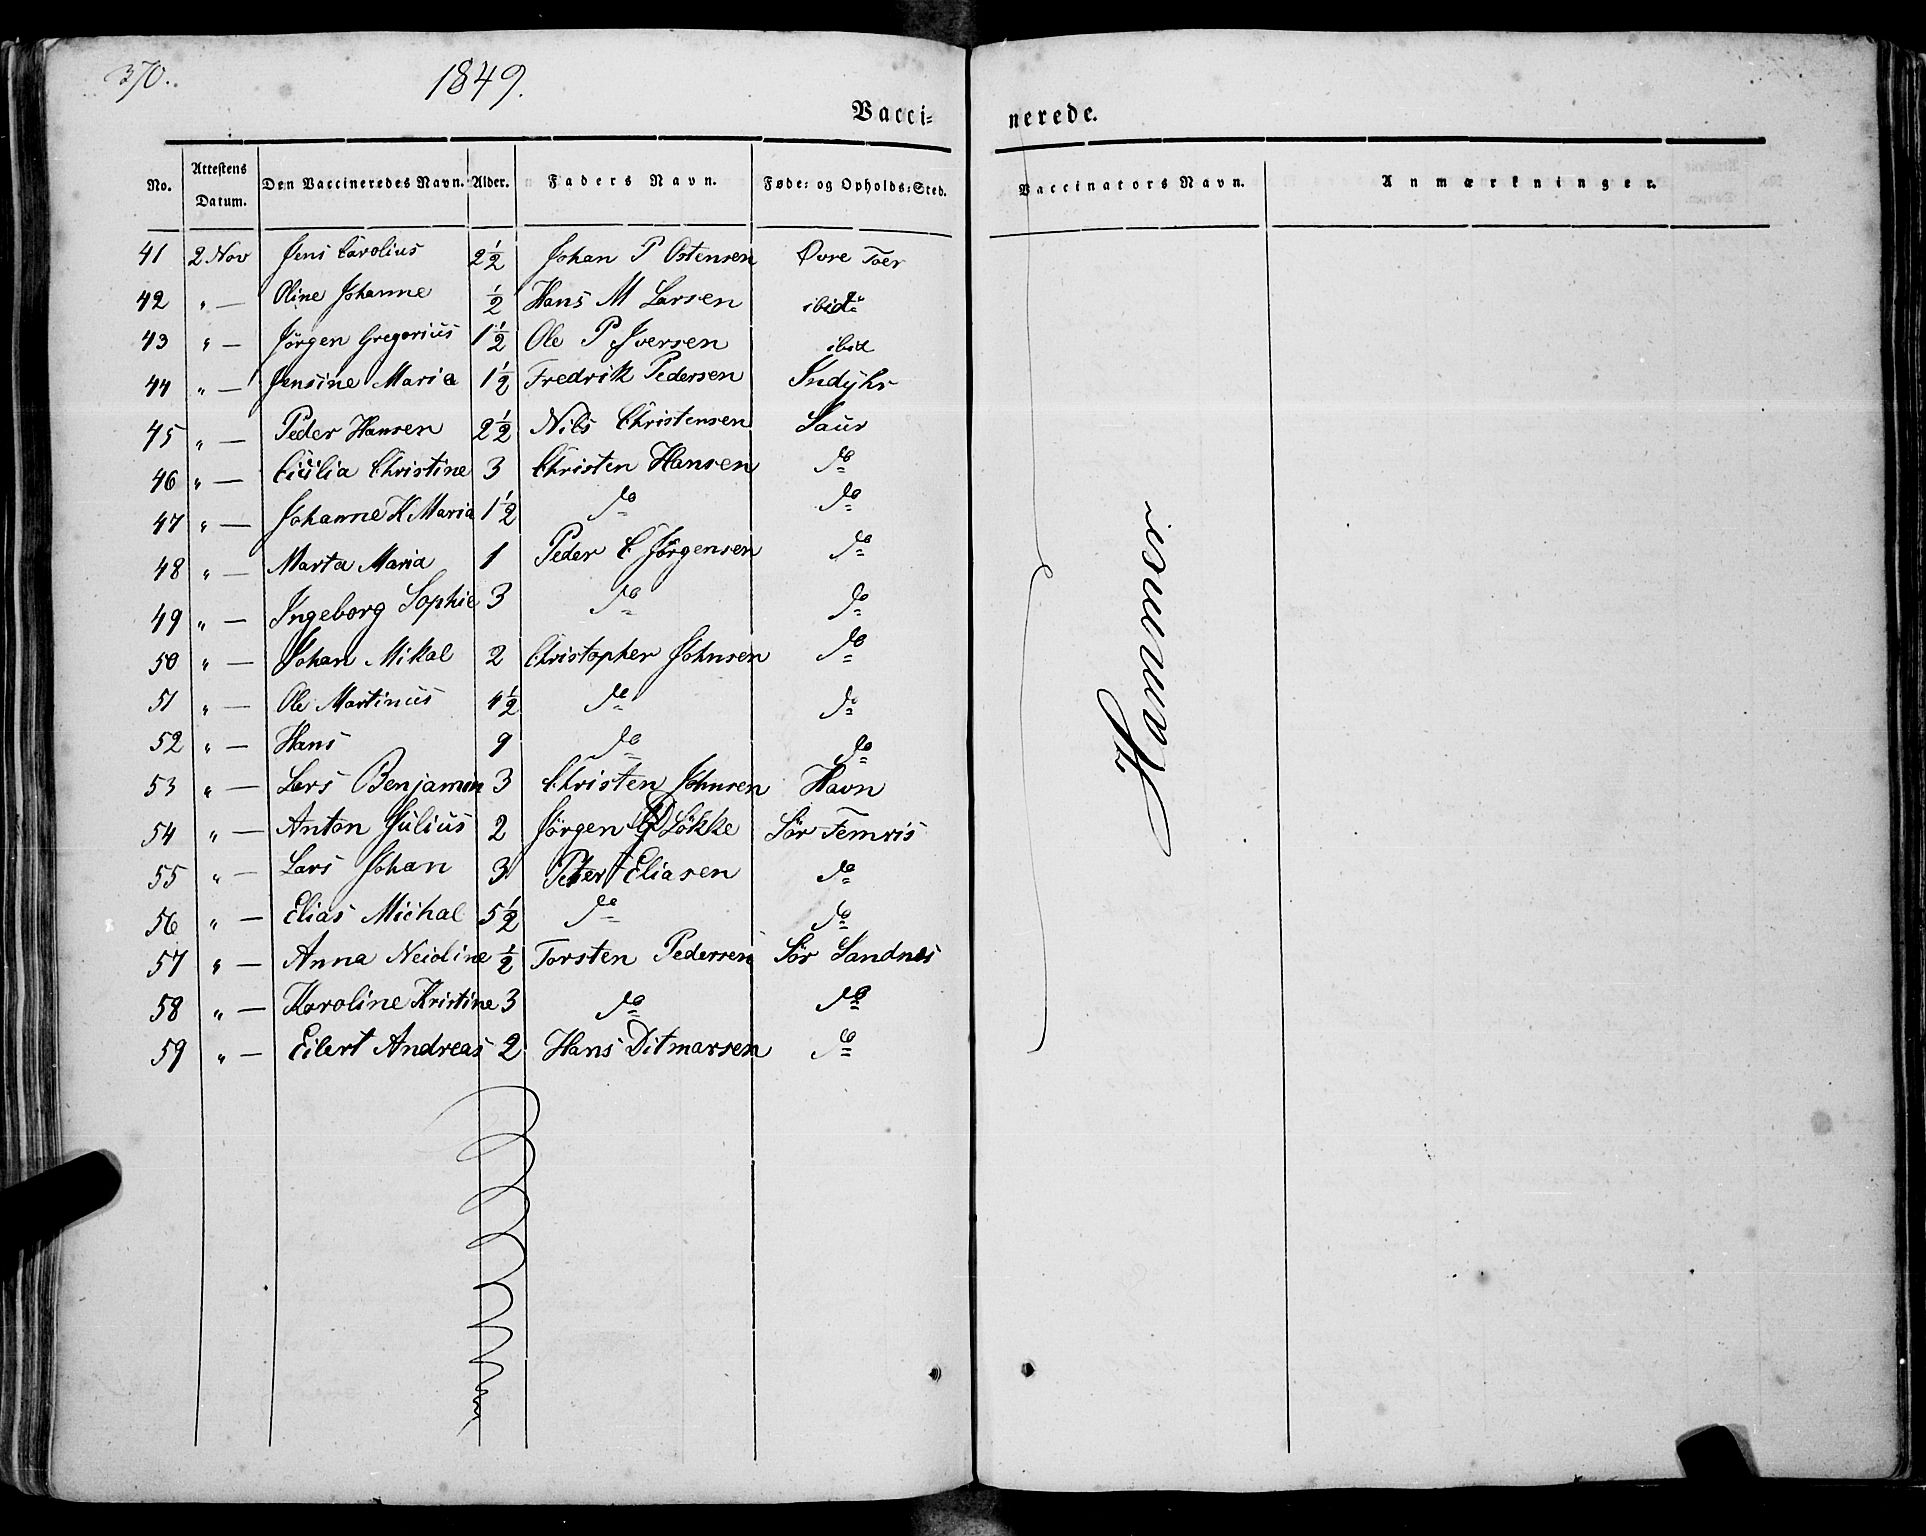 370.
1849.
Vacci= nerede.
No. Attestens Datum. Den Vaccineredes Navn. Alder. Faders Navn. Føde= og Opholds=Sted. Vaccinators Navn. Anmærkninger.
41 2 Nov Jens Carolius 2 1/2 Johan P Ostensen Øvre Toer
42 " — Oline Johanne 1/2 Hans M Larsen ibid
43 " — Jörgen Gregorius 1 1/2 Ole P Iversen ibid
44 " — Jensine Maria 1 1/2 Fredrik Pedersen Indÿhr
45 " — Peder Hansen 2 1/2 Nils Christensen Saur
46 " — Cicilia Christine 3 Christen Hansen do
47 " — Johanne K Maria 1 1/2 do do
48 " — Marta Maria 1 Peder C Jörgensen do
49 " — Ingeborg Sophie 3 do do
50 " — Johan Mikal 2 Christopher Johnsen do
51 " — Ole Martinus 4 1/2 do do
52 " — Hans 9 do do
53 " — Lars Benjamin 3 Christen Johnsen Havn
54 " — Anton Julius 2 Jörgen Lökke Sör Femris
55 " — Lars Johan 3 Peter Eliasen do
56 " — Elias Michal 5 1/2 do do
57 " — Anna Neioline 1/2 Torsten Pedersen Sör Sandnes
58 " — Karoline Kristine 3 do do
59 " — Eilert Andreas 2 Hans Ditmarsen do
Hammer